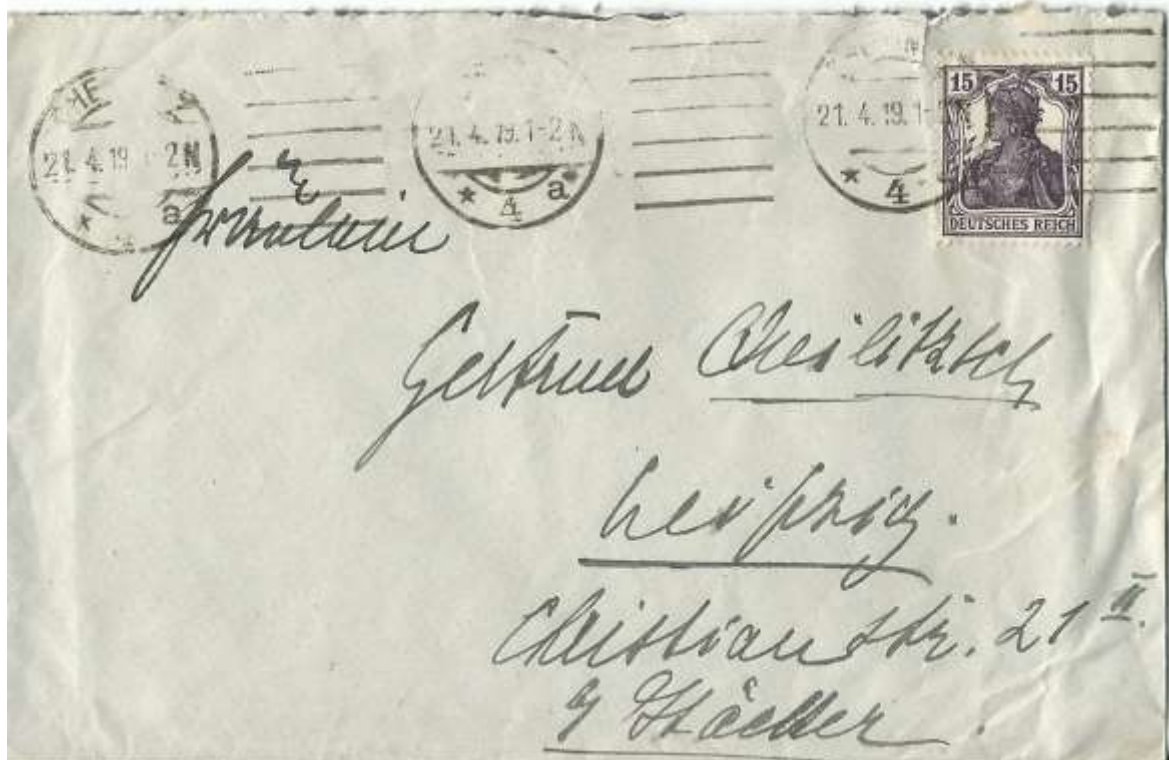 21. 4. 19 1-2 N
* a
21. 4. 19. 1-2 N
* 4 a
21. 4. 19. 1-
* 4
15 15
DEUTSCHES REICH
Fräulein
Gertrud
Leipzig.
Christianstr. 21 II.